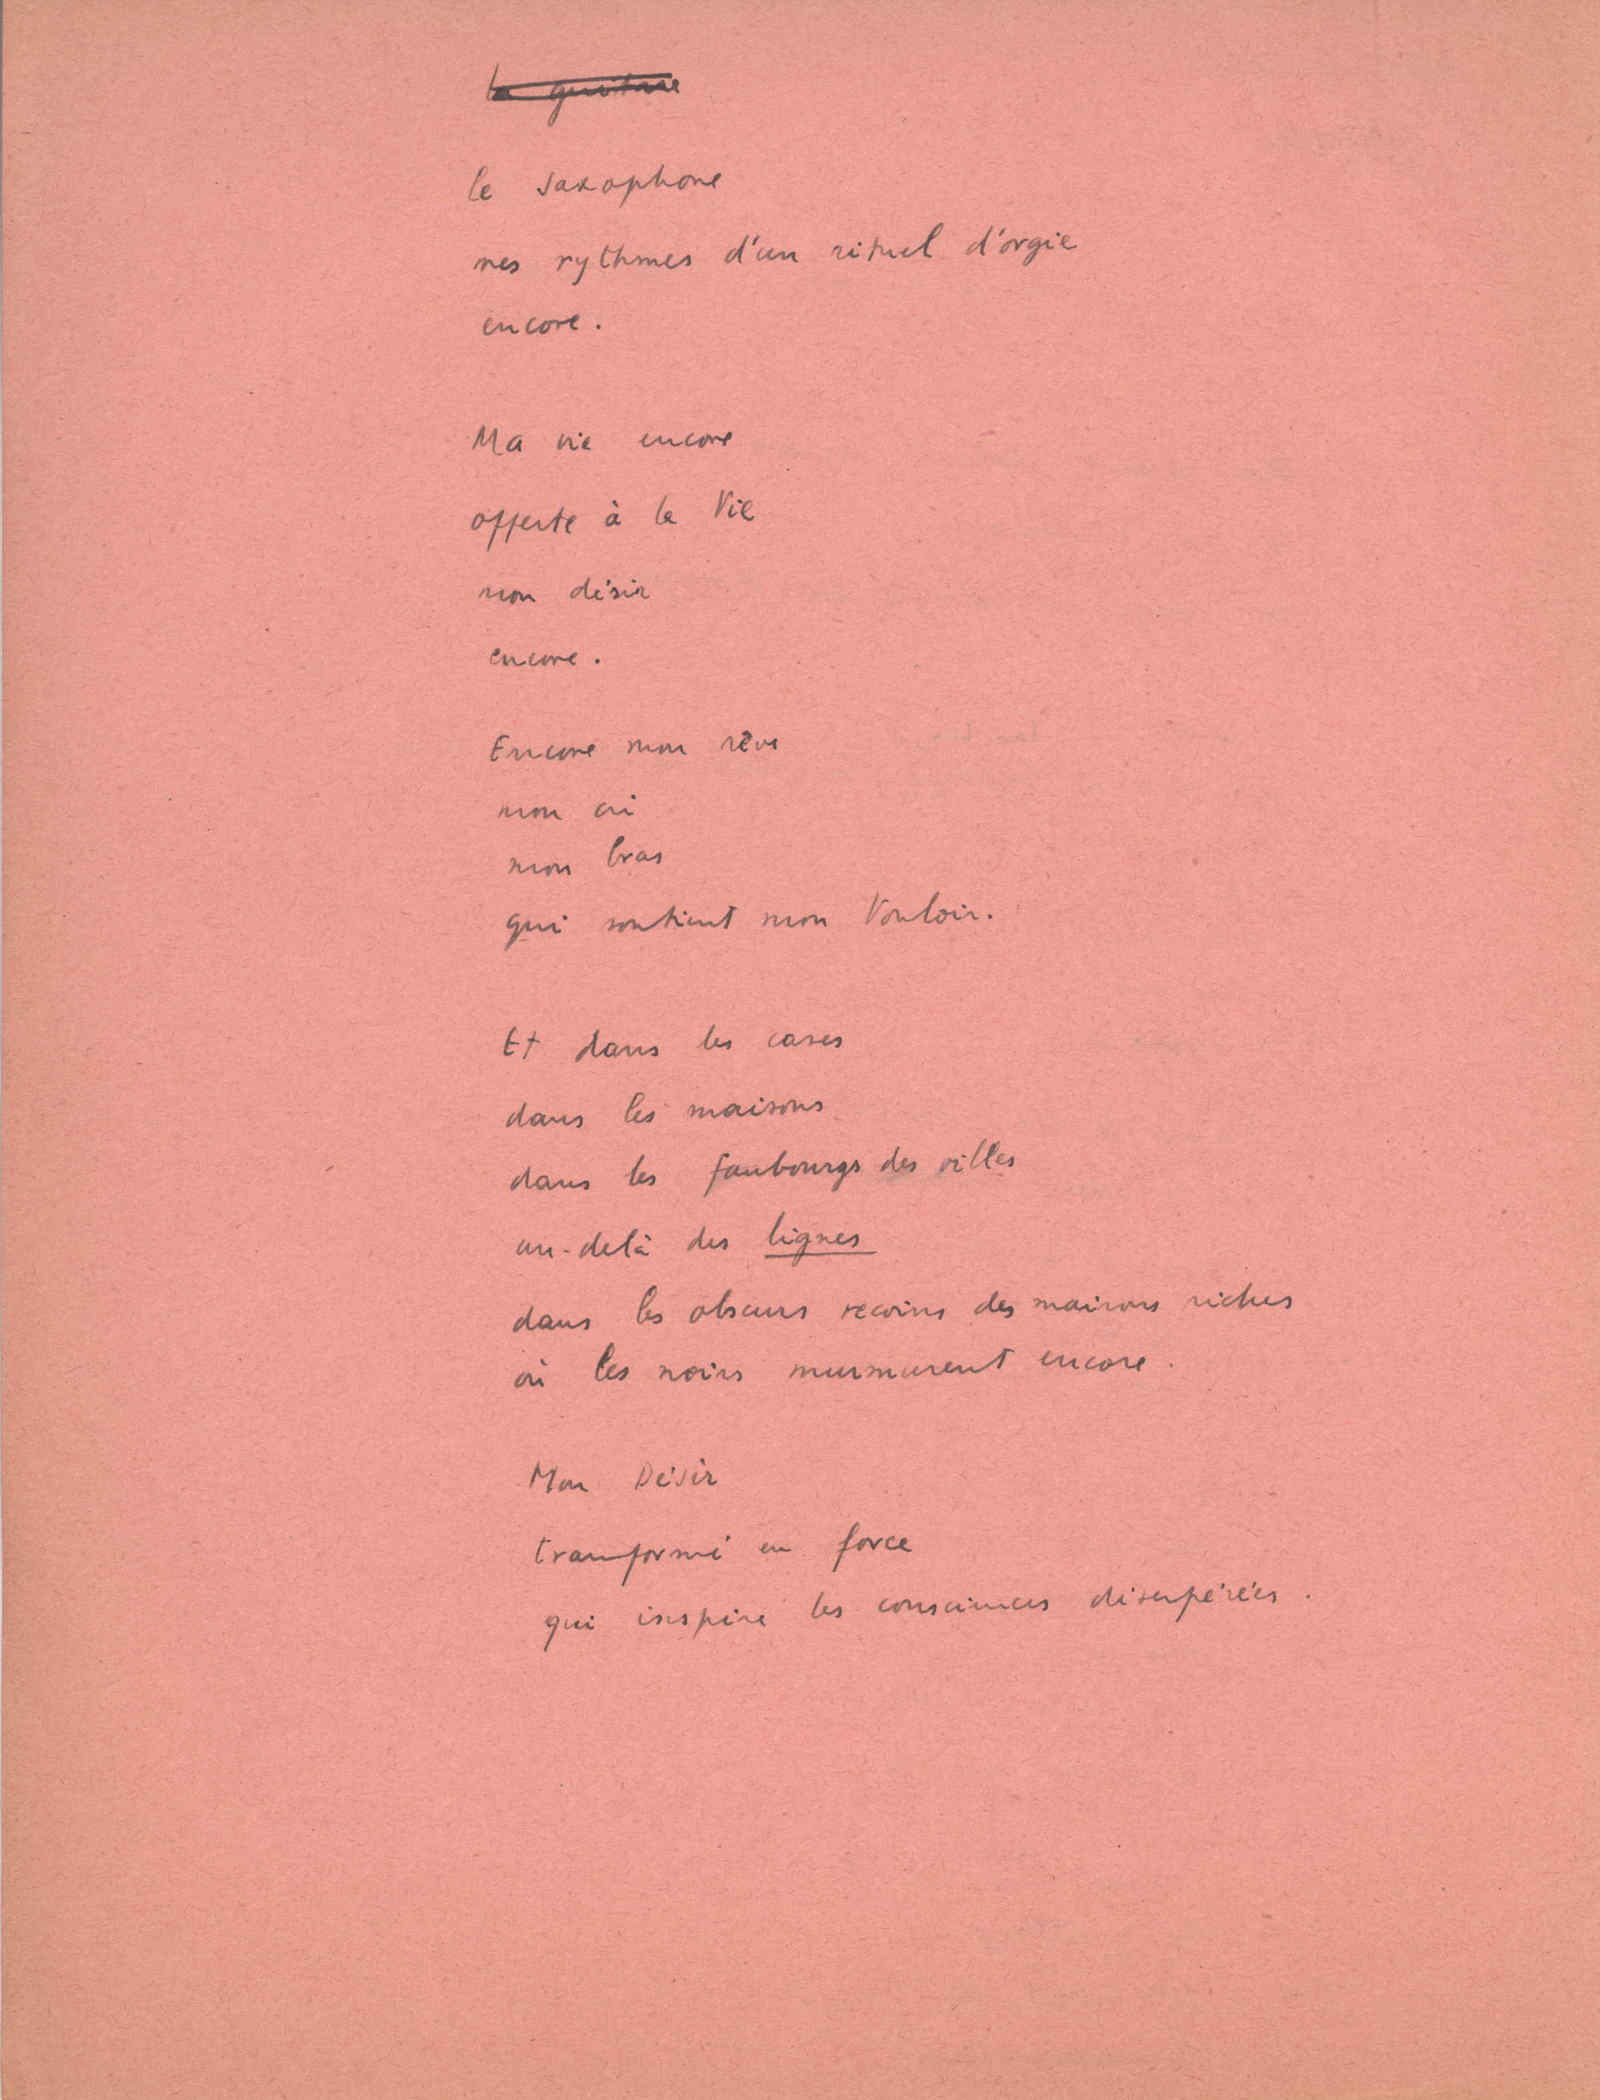 la guitare
le saxophone
mes rythmes d'un rituel d'orgie
encore.
Ma vie encore
offerte à la Vie
mon désir
encore.
Encore mon rêve
mon cri
mon bras
qui soutient mon Vouloir.
Et dans les cases
dans les maisons
dans les faubourgs des villes
au-delà des lignes
dans les obscurs recoins des maisons riches
où les noirs murmurent encore.
Mon Désir
transformé en force
qui inspire les consciences désespérées.